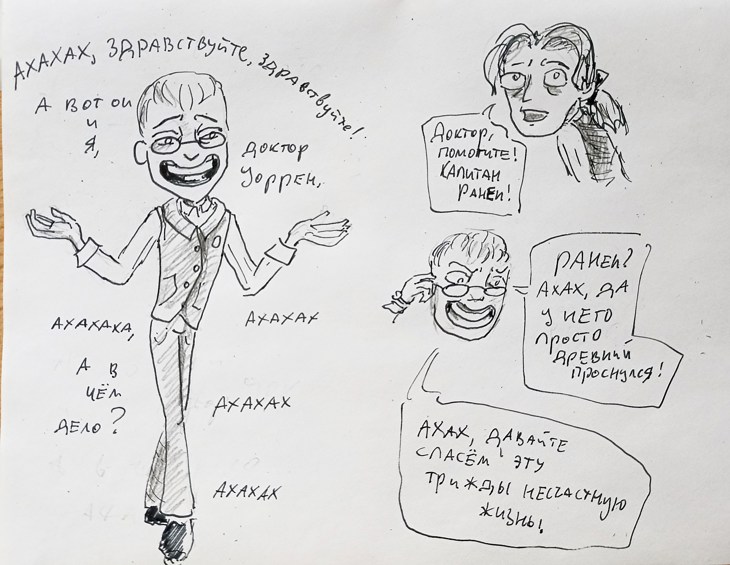 АХАХАХ, ЗДРАВСТВУЙТЕ, ЗДРАВСТВУЙТЕ!
А ВОТ ОН
И
Я,
ДОКТОР
УОРРЕН,
АХАХАХА,
АХАХАХ
А В
ЧЁМ
ДЕЛО?
АХАХАХ
АХАХАХ
ДОКТОР,
ПОМОГИТЕ!
КАПИТАН
РАНЕН!
РАНЕН?
АХАХ, ДА
У НЕГО
ПРОСТО
ДРЕВНИЙ
ПРОСНУЛСЯ!
АХАХ, ДАВАЙТЕ
СПАСЁМ ЭТУ
ТРИЖДЫ НЕСЧАСТНУЮ
ЖИЗНЬ!